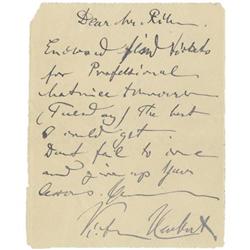 Dear Mr.
Enclosed find tickets
for Professional
Matinee tomorrow
(Tuesday) The best
I could get.
Dont fail to come
and give up your
Victor Herbert